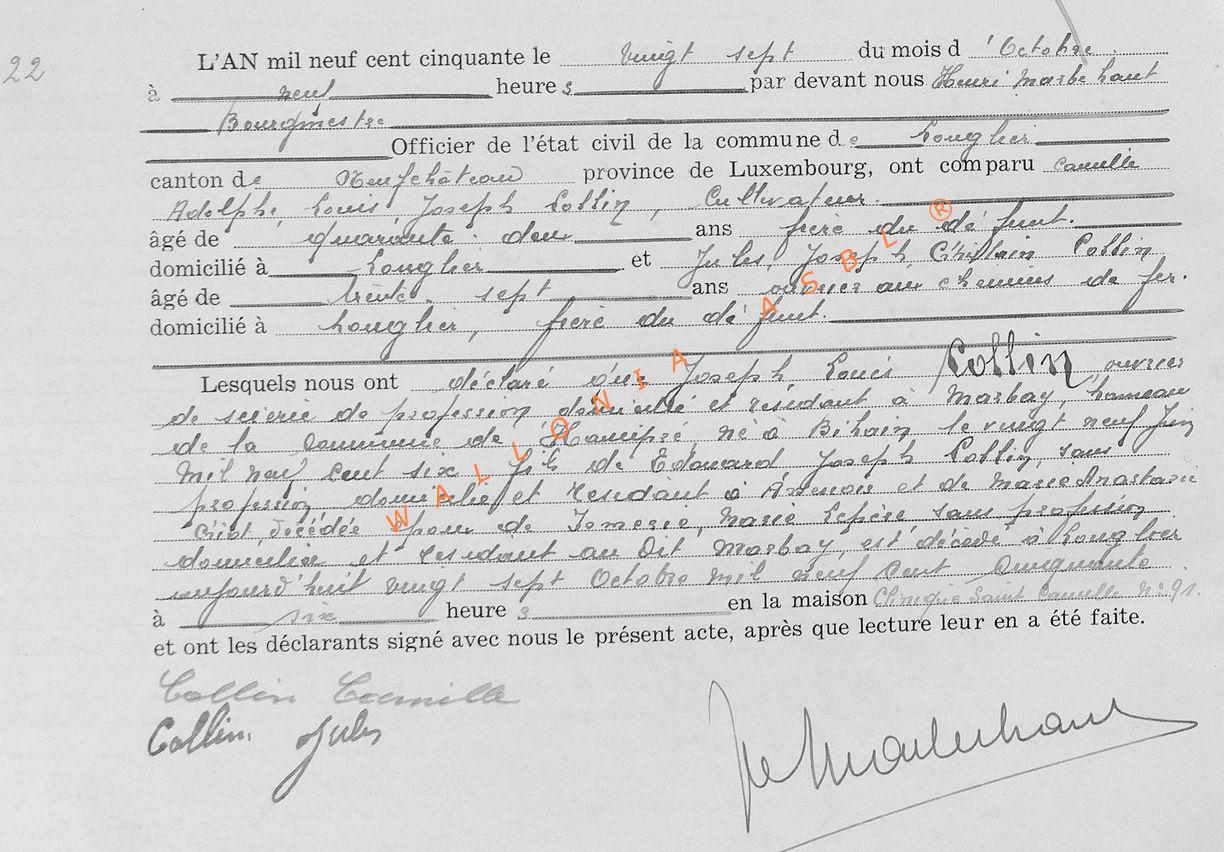 22
L'AN mil neuf cent cinquante le vingt sept du mois d'Octobre.
à neuf heures par devant nous Henri Marbehant
Bourgmestre
Officier de l'état civil de la commune de Longlier
canton de Neufchâteau province de Luxembourg, ont comparu Camille
Adolphe, Louis, Joseph Collin, Cultivateur.
âgé de quarante-deux ans frère du défunt.
domicilié à Longlier et Jules, Joseph, Ghislain Collin
âgé de trente-sept ans ouvrier aux chemins de fer.
domicilié à Longlier, frère du défunt.
Lesquels nous ont déclaré que Joseph, Louis Collin ouvrier
de scierie de profession domicilié et résidant à Marbay, hameau
de la commune de Hamipré, né à Bihain le vingt neuf Juin
mil neuf cent six fils de Edouard, Joseph Collin, sans
profession, domicilié et résidant à Assenois et de Marie Anastasie
décédée époux de Marie Lepère sans profession
domiciliée et résidant au dit Marbay, est décédé à Longlier
aujourd'huit vingt sept Octobre mil neuf cent Cinquante
à six heures en la maison Clinique Saint Camille N° 91.
et ont les déclarants signé avec nous le présent acte, après que lecture leur en a été faite.
Collin Camille
Collin Jules
Marbehant
WALLONIA ASBL ®